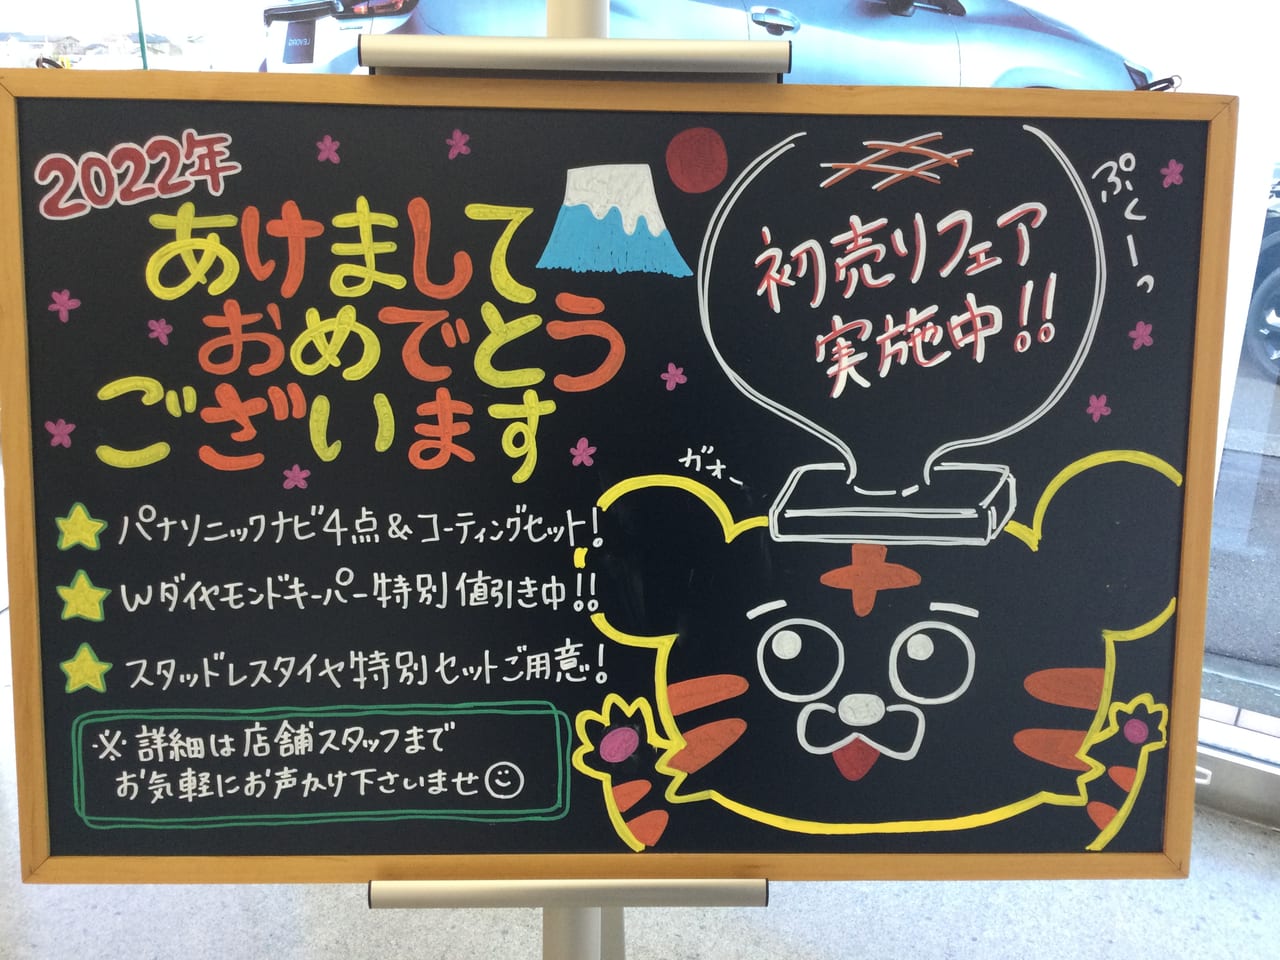 2022年
あけまして
おめでとう
ございます
初売りフェア
実施中!!
ぷくーっ
ガオー
パナソニックナビ4点&コーティングセット!
Wダイヤモンドキーパー特別値引き中!!
スタッドレスタイヤ特別セットご用意!
※詳細は店舗スタッフまで
お気軽にお声かけ下さいませ
LEVORG